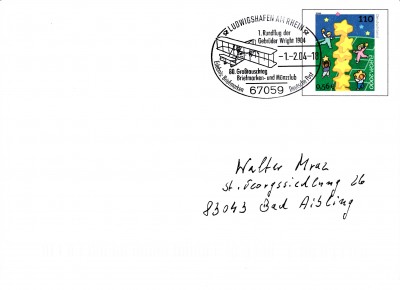 LUDWIGSHAFEN AM RHEIN
1. Rundflug der
Gebrüder Wright 1904
-1.-2.04-18
60. Großtauschtag
Briefmarken- und Münzclub
Erlebnis: Briefmarken
Deutsche Post
67059
110
EUROPA 2000
0,56 €
Walter Mraz
St. Georgssiedlung 26
83043 Bad Aibling